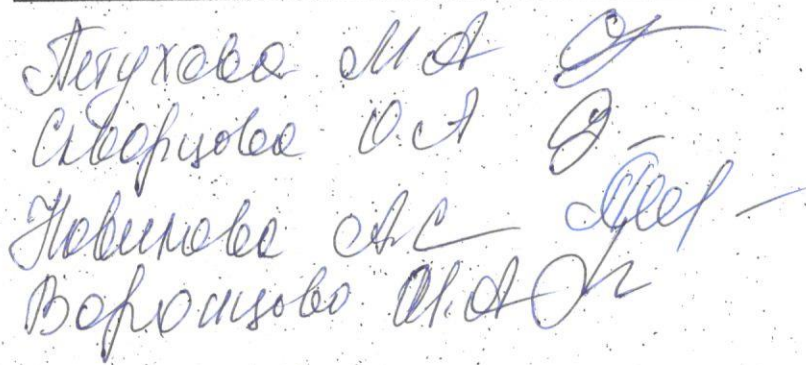 Петухова М А
Скворцова О.А
Новикова А С
Воронцова И.А